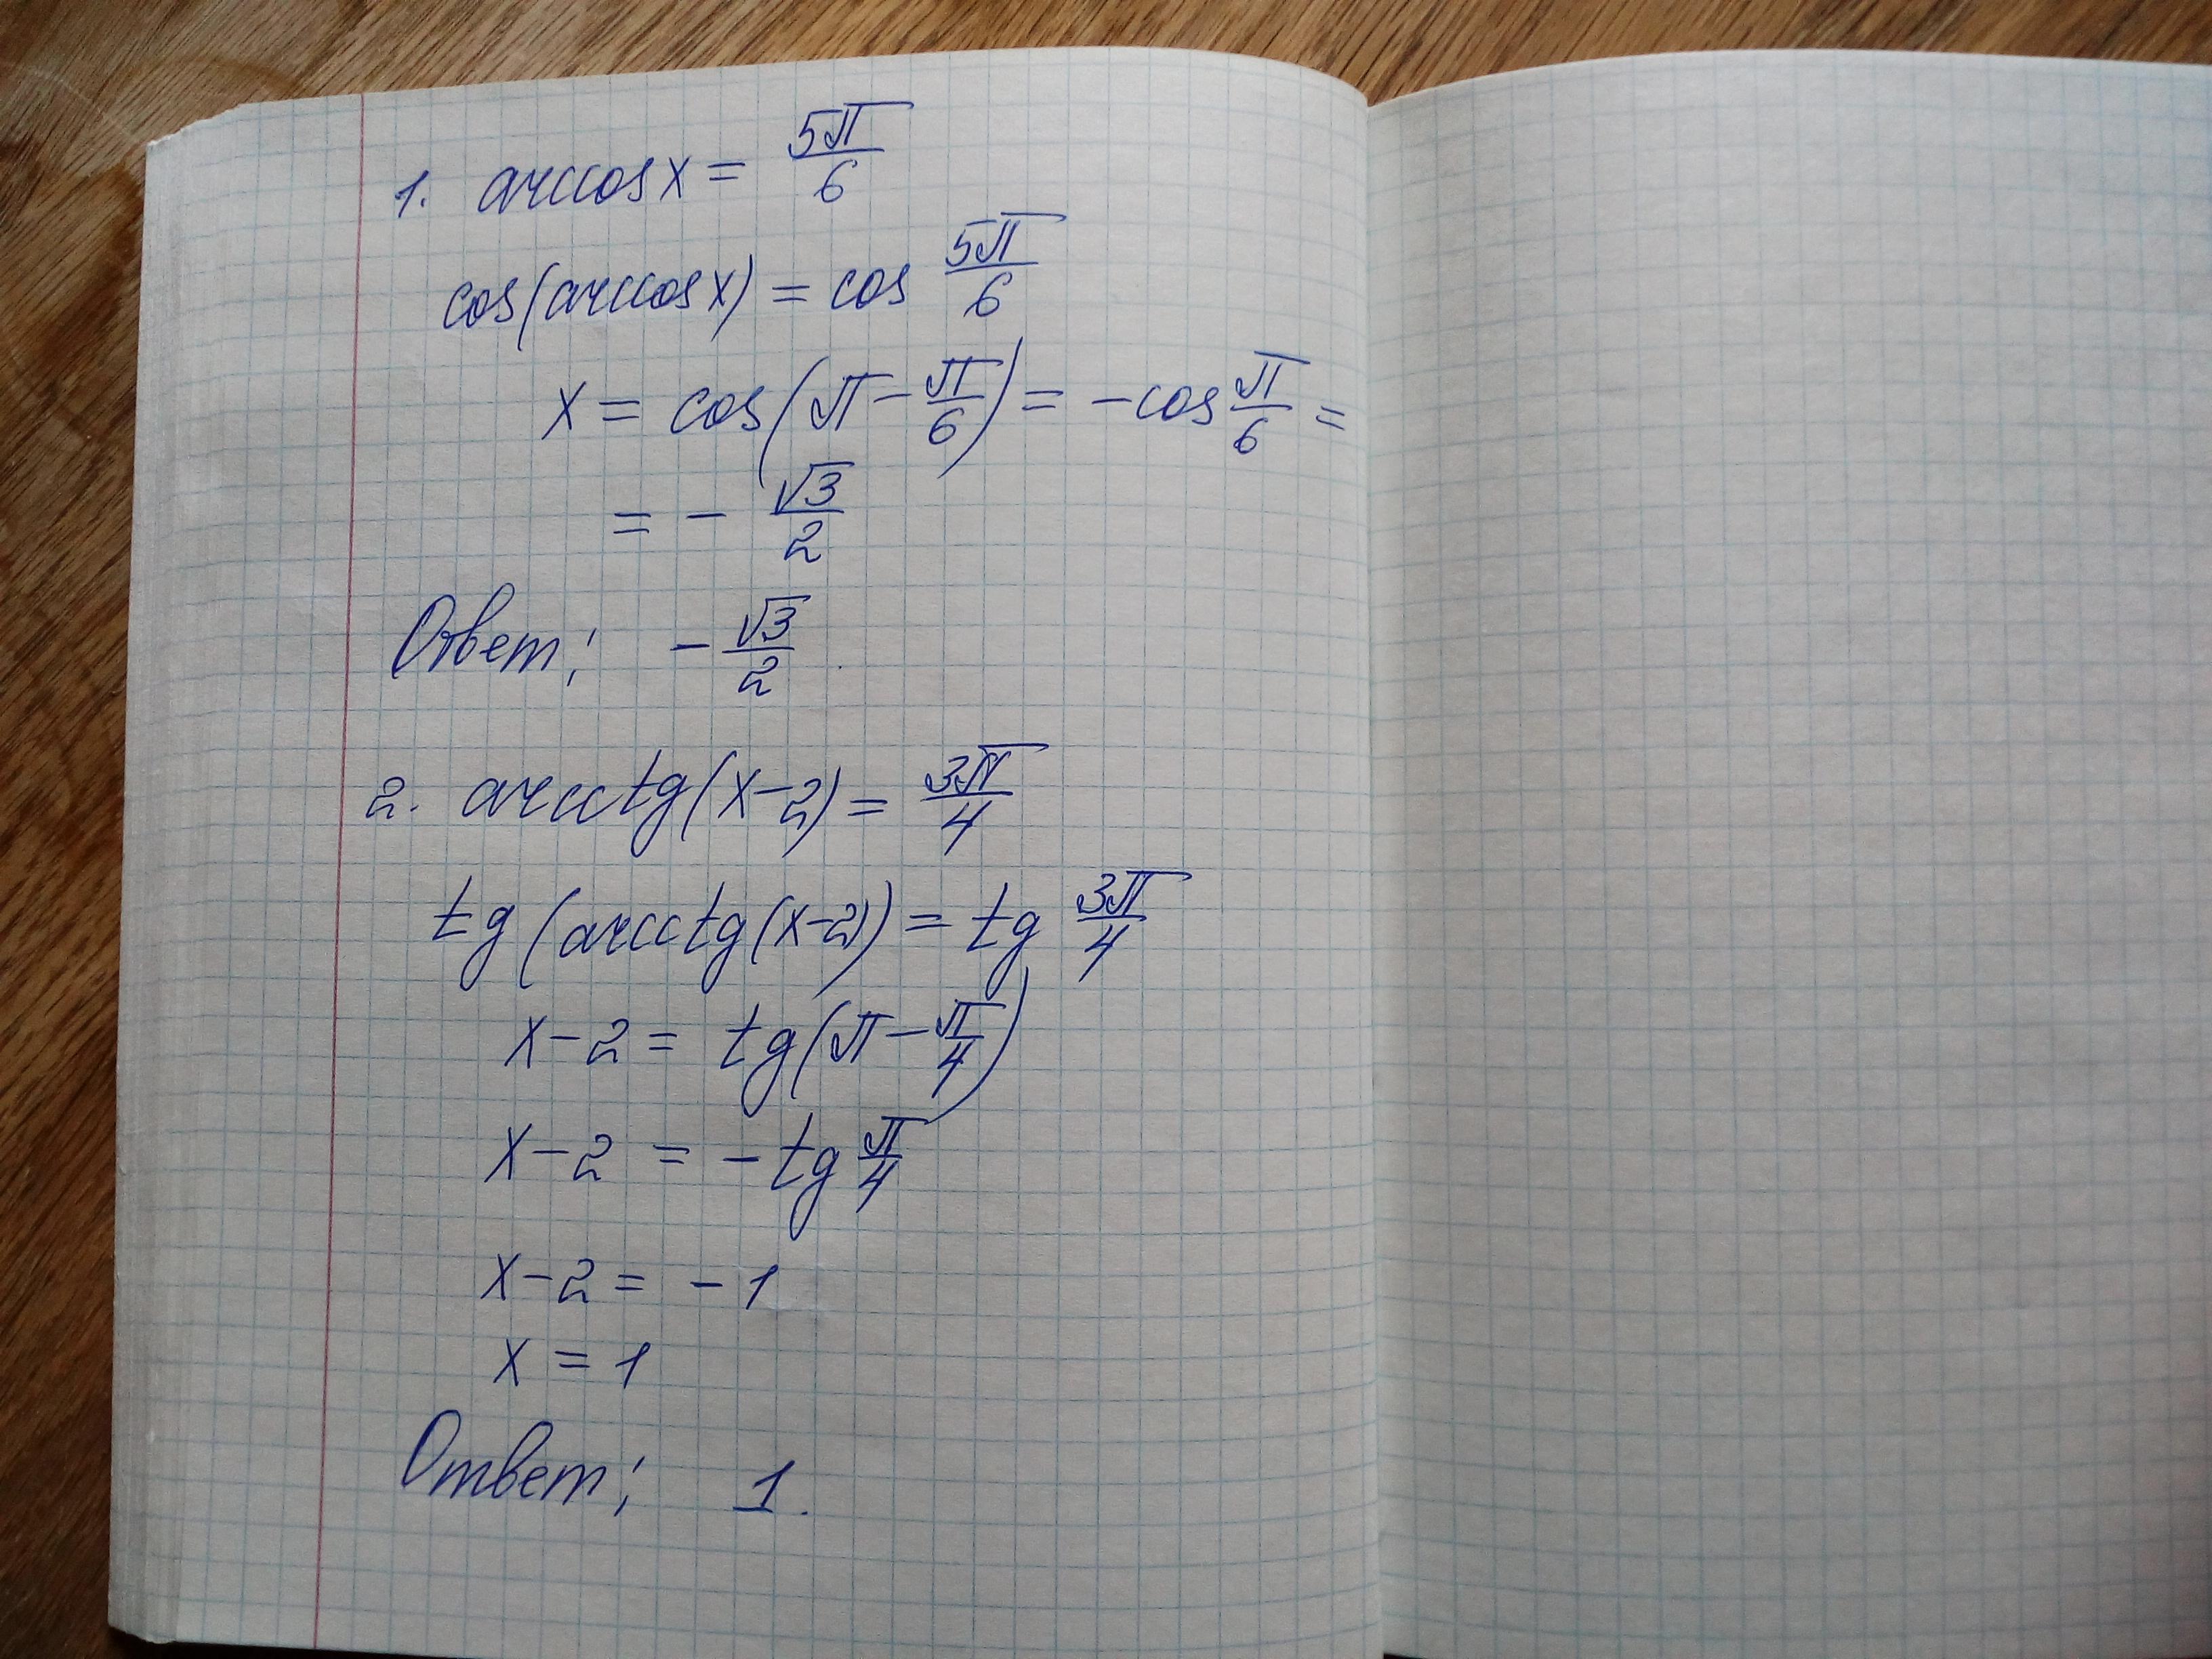 1. arccos x = 5π/6
cos(arccos x) = cos 5π/6
x = cos(π - π/6) = -cos π/6 =
= - √3/2
Ответ: -√3/2.
2. arcctg(x-2) = 3π/4
tg(arcctg(x-2)) = tg 3π/4
x-2 = tg(π - π/4)
x-2 = -tg π/4
x-2 = -1
x = 1
Ответ: 1.